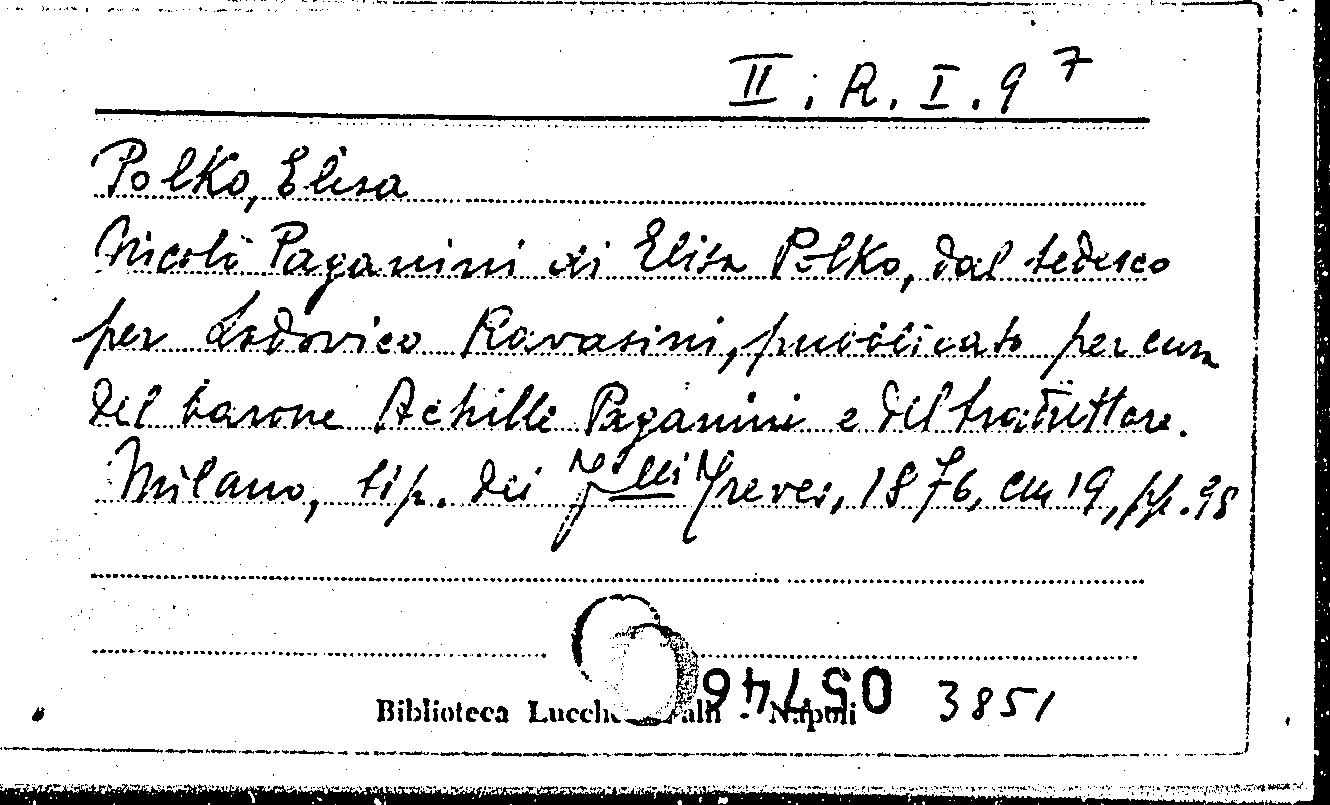 II. R. I. 9 7
Polko, Elisa
Nicolò Paganini di Elisa Polko, dal tedesco
per Lodovico Ravasini, pubblicato per cura
del barone Achille Paganini e del traduttore.
Milano, tip. dei F.lli Treves, 1876, cm 19, pp. 98
3851
Biblioteca - Napoli